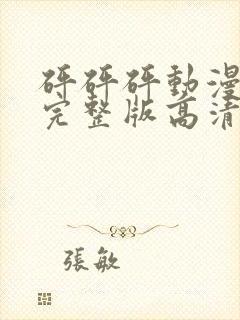 砰砰砰動漫
完整版高清
張敏